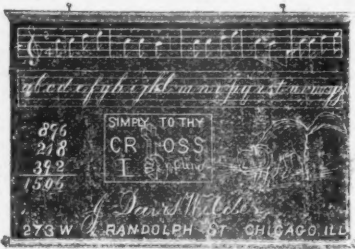 abcdefghijklmnopqrstuvwxyz
896
218
392
1506
SIMPLY TO THY
CR OSS
I
J. Davis Wilder
273 W RANDOLPH ST CHICAGO, ILL